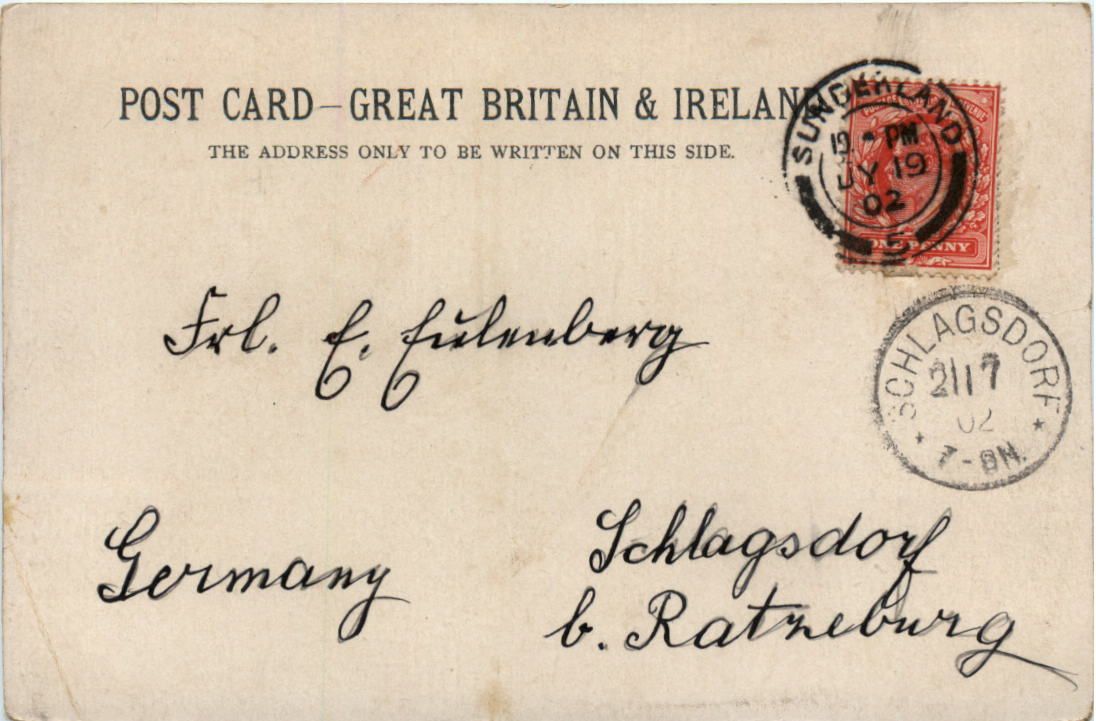 POST CARD–GREAT BRITAIN & IRELAND
THE ADDRESS ONLY TO BE WRITTEN ON THIS SIDE.
SUNDERLAND
PM
JY 19
02
5
ONE PENNY
SCHLAGSDORF
21/7
02
7-8N.
Frl. E. Eulenberg
Germany
Schlagsdorf
b. Ratzeburg